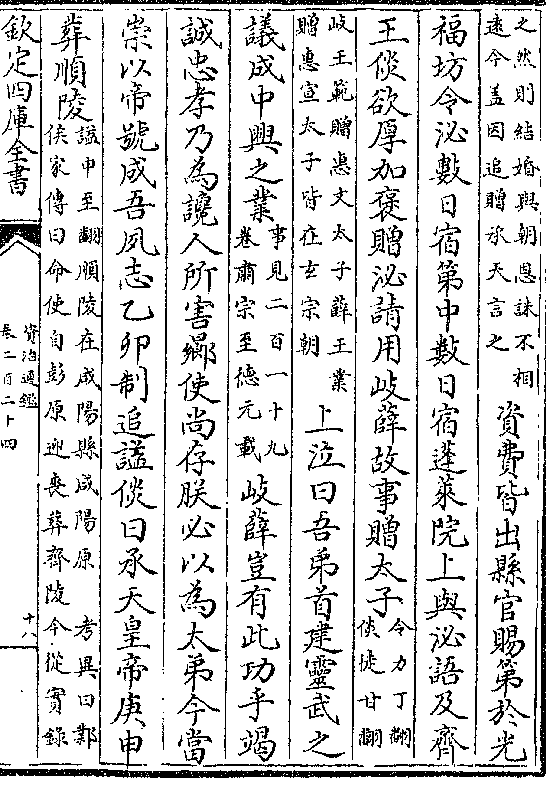 之然則結婚與朝恩誅不相
逺今盖因追贈承天言之
資費皆出縣官賜第於光
福坊令泌數日宿第中數日宿蓬萊院上與泌語及齊
王倓欲厚加襃贈泌請用岐薛故事贈太子
令力丁翻
倓徒甘翻
岐王範贈惠文太子薛王業
贈惠宣太子皆在玄宗朝
上泣曰吾弟首建靈武之
議成中興之業
事見二百一十九
卷肅宗至德元載
岐薛豈有此功乎竭
誠忠孝乃為讒人所害曏使尚存朕必以為太弟今當
崇以帝號成吾夙志乙卯制追諡倓曰承天皇帝庚申
葬順陵
諡申至翻順陵在咸陽縣咸陽原 考異曰鄴
侯家傳曰命使自彭原迎喪葬齊陵今從實錄
欽定四庫全書
資治通鑑
卷二百二十四
十八